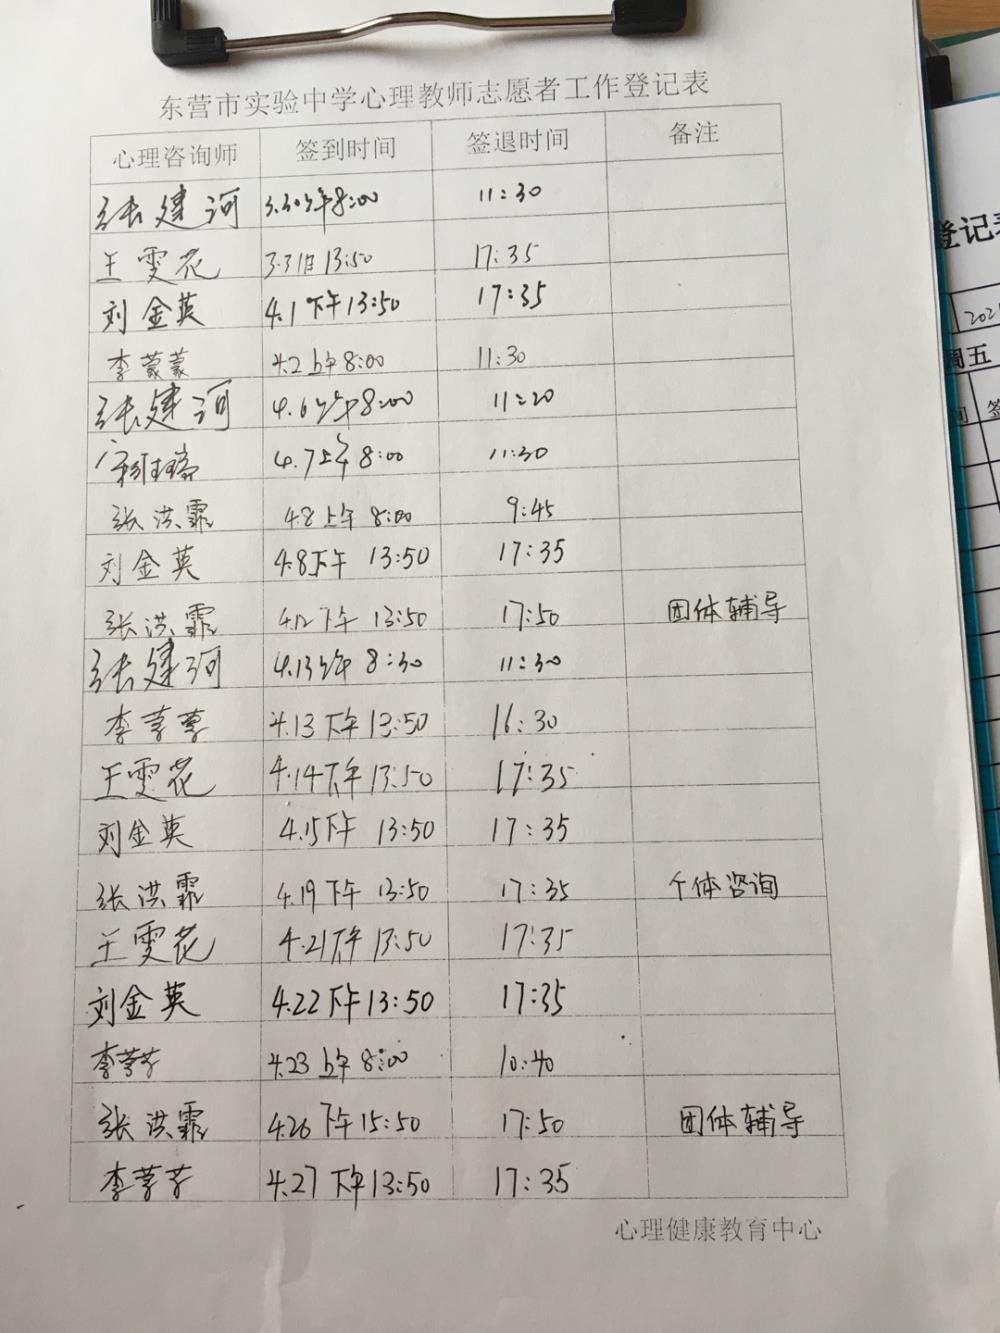 东营市实验中学心理教师志愿者工作登记表
心理咨询师 签到时间 签退时间 备注
张建河 3.30上午8:00 11:30
王雯花 3.31日 13:50 17:35
刘金英 4.1下午13:50 17:35
李蒙蒙 4.2上午8:00 11:30
张建河 4.6上午8:00 11:20
4.7上午8:00 11:30
张洪霏 4.8上午 8:00 9:45
刘金英 4.8下午 13:50 17:35
张洪霏 4.12下午 13:50 17:50 团体辅导
张建河 4.13上午 8:30 11:30
李 4.13下午13:50 16:30
王雯花 4.14下午13:50 17:35
刘金英 4.15下午 13:50 17:35
张洪霏 4.19下午 13:50 17:35 个体咨询
王雯花 4.21下午13:50 17:35
刘金英 4.22下午13:50 17:35
李 4.23上午8:00 10:40
张洪霏 4.26下午15:50 17:50 团体辅导
李 4.27下午13:50 17:35
心理健康教育中心
登记表
202
周五
签